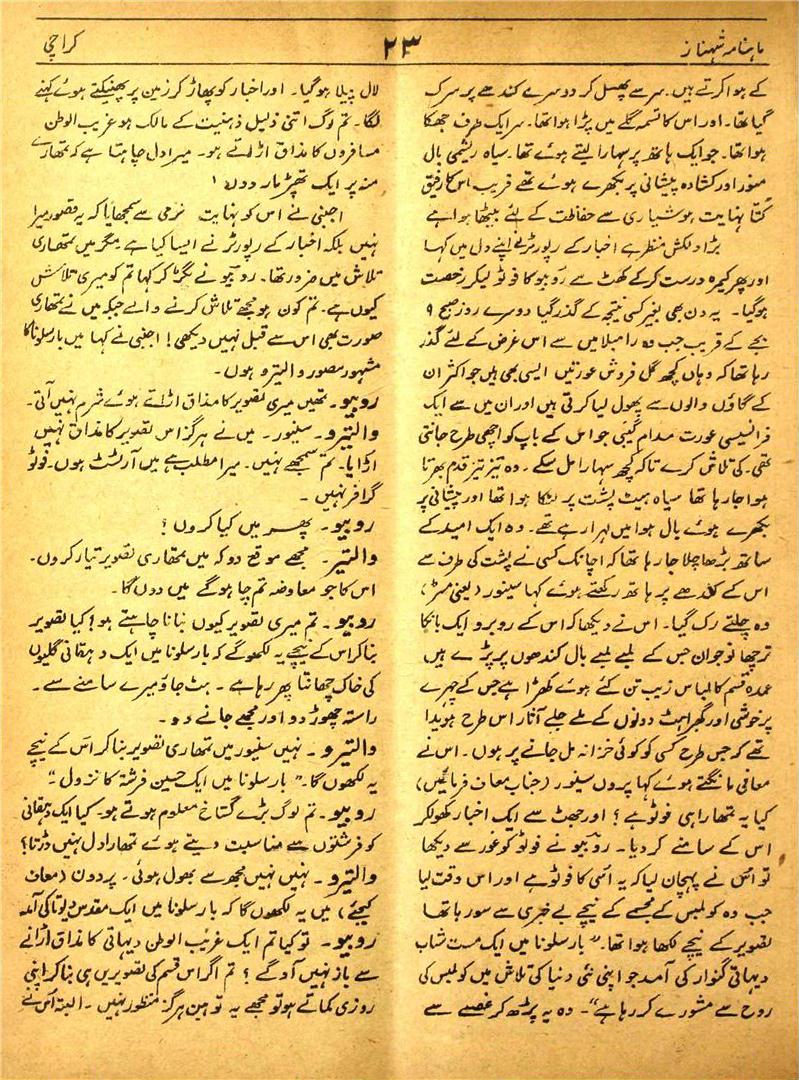 ماہنامہ شہناز
۲۳
کراچی
کے ہوا کرتے ہیں۔ سر سے پھسل کر دوسرے کندھے پر سرک
گیا تھا۔ اور اس کا تسمہ گلے میں پڑا ہوا تھا۔ سر ایک طرف جھکا
ہوا تھا۔ جو ایک ہاتھ پر سہارا لیتے ہوئے تھا۔ سیاہ ریشمی بال
منور اور کشادہ پیشانی پر بکھرے ہوئے تھے قریب اس کا رفیق
کتا نہایت ہوشیاری سے حفاظت کے لئے بیٹھا ہوا ہے
بڑا دلکش منظر ہے اخبار کے رپورٹر نے اپنے دل میں کہا
اور پھر کیمرہ درست کر کے کھٹ سے روبیو کا فوٹو لیکر رخصت
ہوگیا۔ یہ دن بھی بغیر کسی نتیجہ کے گذر گیا دوسرے روز صبح ۹
بجے کے قریب جب وہ رامبلا میں سے اس غرض کے لئے گذر
رہا تھا کہ وہاں کچھ گل فروش عورتیں ایسی بھی ہیں جو اکثر ان
کے گاؤں والوں سے پھول لیا کرتی ہیں اور ان میں سے ایک
فرانسیسی عورت مدام کیبی جو اس کے باپ کو اچھی طرح جانتی
تھی۔ کی تلاش کرے تاکہ کچھ سہارا مل سکے۔ وہ تیز تیز قدم بھرتا
ہوا جا رہا تھا سیاہ ہیٹ پشت پر لٹکا ہوا تھا اور پیشانی پر
بکھرے ہوئے بال ہوا میں لہرا رہے تھے۔ وہ ایک امید کے
ساتھ بڑھا چلا جا رہا تھا کہ اچانک کسی نے پشت کی طرف سے
اس کے کندھے پر ہاتھ رکھتے ہوئے کہا سینور (یعنی مسٹر)
وہ چلتے رک گیا۔ اس نے دیکھا کہ اس کے روبرو ایک بانکا
ترچھا نوجوان جس کے لمبے لمبے بال کندھوں پر پڑے ہیں
عمدہ قسم کا لباس زیب تن کئے ہوئے کھڑا ہے جس کے چہرے
پر خوشی اور گھبراہٹ دونوں کے ملے جلے آثار اس طرح ہویدا
تھے کہ جس طرح کسی کو کوئی خزانہ مل جانے پر ہوں۔ اس نے
معافی مانگتے ہوئے کہا پردوں سینور (جناب معاف فرمائیں)
کیا یہ تمھارا ہی فوٹو ہے؟ اور جھٹ سے ایک اخبار کھولکر
اس کے سامنے کر دیا۔ روبیو نے فوٹو کو غور سے دیکھا
تو اس نے پہچان لیا کہ یہ اسی کا فوٹو ہے اور اس وقت لیا
جب وہ کولمبس کے مجسمے کے نیچے بے خبری سے سو رہا تھا
تصویر کے نیچے لکھا ہوا تھا۔ "بارسلونا میں ایک مست شاب
دیہاتی گنوار کی آمد جو اپنی نئی دنیا کی تلاش میں کولمبس کی
روح سے مشورے کر رہا ہے"۔ وہ یہ پڑھ کر غصے سے
لال پیلا ہوگیا۔ اور اخبار کو پھاڑ کر زمین پر پھینکتے ہوئے کہنے
لگا۔ تم لوگ اتنی ذلیل ذہنیت کے مالک ہو غریب الوطن
مسافروں کا مذاق اڑاتے ہو۔ میرا دل چاہتا ہے کہ تمھارے
منہ پر ایک تھپڑ مار دوں !
اجنبی نے اس کو نہایت نرمی سے سمجھایا کہ یہ قصور میرا
نہیں بلکہ اخبار کے رپورٹر نے ایسا کیا ہے مگر میں تمھاری
تلاش میں ضرور تھا۔ روبیو نے بگڑ کر کہا تم کو میری تلاش
کیوں ہے۔ تم کون ہو مجھے تلاش کرنے والے جبکہ میں نے تمھاری
صورت بھی اس سے قبل نہیں دیکھی! اجنبی نے کہا میں بارسلونا کا
مشہور مصور والتیرو ہوں۔
روبیو۔ تمھیں میری تصویر کا مذاق اڑاتے ہوئے شرم نہیں آتی۔
والتیرو۔ سنیور۔ میں نے ہرگز اس تصویر کا مذاق نہیں
اڑایا۔ تم سمجھے نہیں۔ میرا مطلب ہے میں آرٹسٹ ہوں۔ فوٹو
گرافر نہیں۔
روبیو۔ پھر میں کیا کروں؟
والتیر۔ مجھے موقع دو کہ میں تمھاری تصویر تیار کروں۔
اس کا جو معاوضہ تم چاہو گے میں دوں گا۔
روبیو۔ تم میری تصویر کیوں بنانا چاہتے ہو! کیا تصویر
بنا کر اس کے نیچے یہ لکھو گے کہ بارسلونا میں ایک دہقانی گلیوں
کی خاک چھانتا پھر رہا ہے۔ ہٹ جاؤ میرے سامنے سے۔
راستہ چھوڑ دو اور مجھے جانے دو۔
والتیرو۔ نہیں سنیور میں تمھاری تصویر بنا کر اس کے نیچے
یہ لکھوں گا۔ "بارسلونا میں ایک حسین فرشتہ کا نزول"
روبیو۔ تم لوگ بڑے گستاخ معلوم ہوتے ہو۔ کیا ایک دہقانی
کو فرشتوں سے مناسبت دیتے ہوئے تمھارا دل نہیں ڈرتا؟
والتیرو۔ نہیں نہیں مجھ سے بھول ہوئی۔ پردون (معاف
کیجئے) میں یہ لکھوں گا کہ بارسلونا میں ایک مقدس دیوتا کی آمد
روبیو۔ تو کیا تم ایک غریب الوطن دیہاتی کا مذاق اڑانے
سے باز نہیں آؤ گے؟ تم اگر اس قسم کی تصویریں ہی بنا کر اپنی
روزی کماتے ہو تو مجھے یہ توہین ہرگز منظور نہیں۔ البتہ اس نے